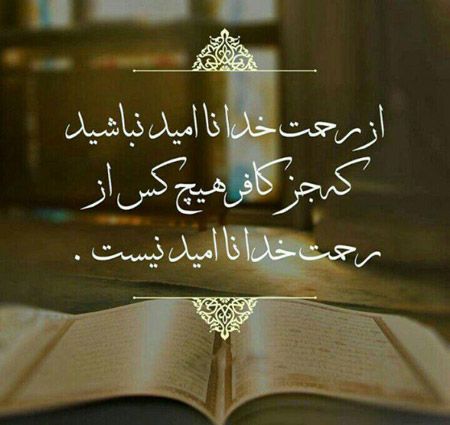 از رحمت خدا نا امید نباشید
که جز کافر هیچ کس از
رحمت خدا نا امید نیست .